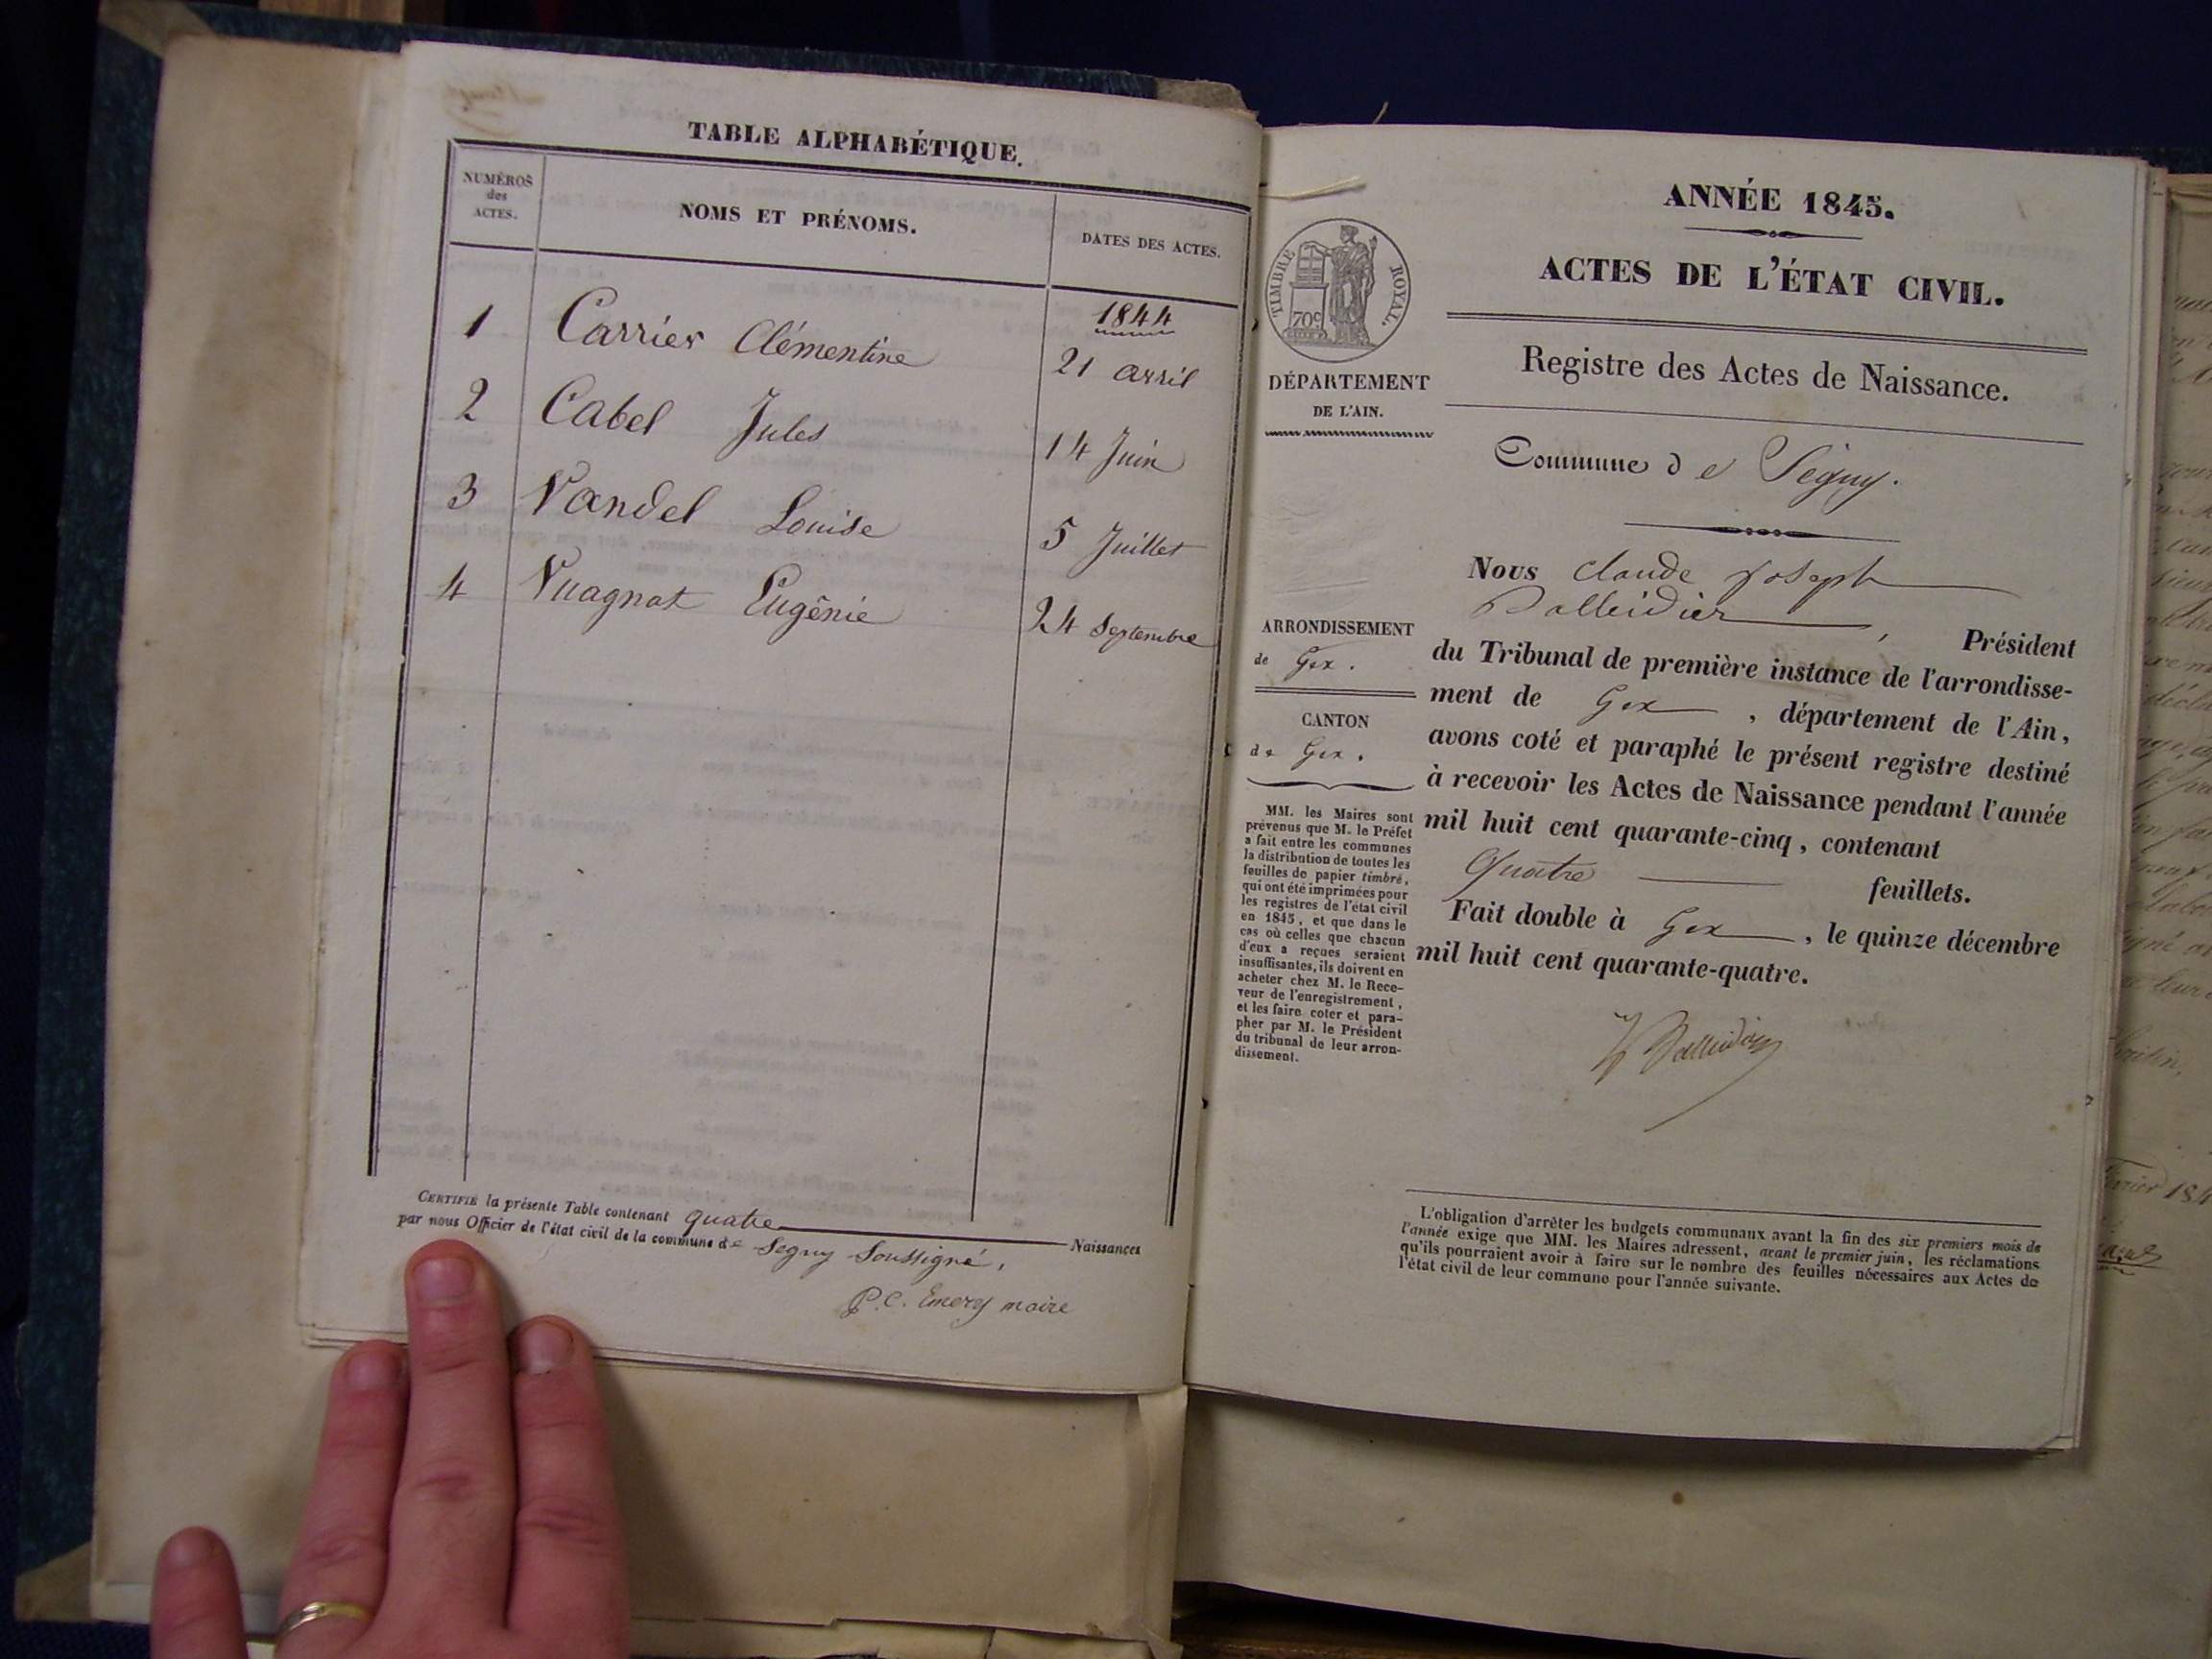 TABLE ALPHABÉTIQUE.
NUMÉROS
des
ACTES.
NOMS ET PRÉNOMS.
DATES DES ACTES.
1844
1 Carrier Clémentine 21 avril
2 Cabel Jules 14 Juin
3 Vandel Louise 5 Juillet
4 Vuagnat Eugénie 24 Septembre
CERTIFIÉ la présente Table contenant quatre Naissances
par nous Officier de l'état civil de la commune de Segny Soussigné,
P.C. Emery maire
ANNÉE 1845.
ACTES DE L'ÉTAT CIVIL.
Registre des Actes de Naissance.
TIMBRE ROYAL.
70c
DÉPARTEMENT
DE L'AIN.
Commune de Ségny.
Nous Claude Joseph
, Président
ARRONDISSEMENT
de Gex.
CANTON
de Gex.
du Tribunal de première instance de l'arrondisse-
ment de Gex , département de l'Ain,
avons coté et paraphé le présent registre destiné
à recevoir les Actes de Naissance pendant l'année
mil huit cent quarante-cinq, contenant
Quatre feuillets.
Fait double à Gex , le quinze décembre
mil huit cent quarante-quatre.
MM. les Maires sont
prévenus que M. le Préfet
a fait entre les communes
la distribution de toutes les
feuilles de papier timbré,
qui ont été imprimées pour
les registres de l'état civil
en 1845, et que dans le
cas où celles que chacun
d'eux a reçues seraient
insuffisantes, ils doivent en
acheter chez M. le Rece-
veur de l'enregistrement,
et les faire coter et para-
pher par M. le Président
du tribunal de leur arron-
dissement.
L'obligation d'arrêter les budgets communaux avant la fin des six premiers mois de
l'année exige que MM. les Maires adressent, avant le premier juin, les réclamations
qu'ils pourraient avoir à faire sur le nombre des feuilles nécessaires aux Actes de
l'état civil de leur commune pour l'année suivante.